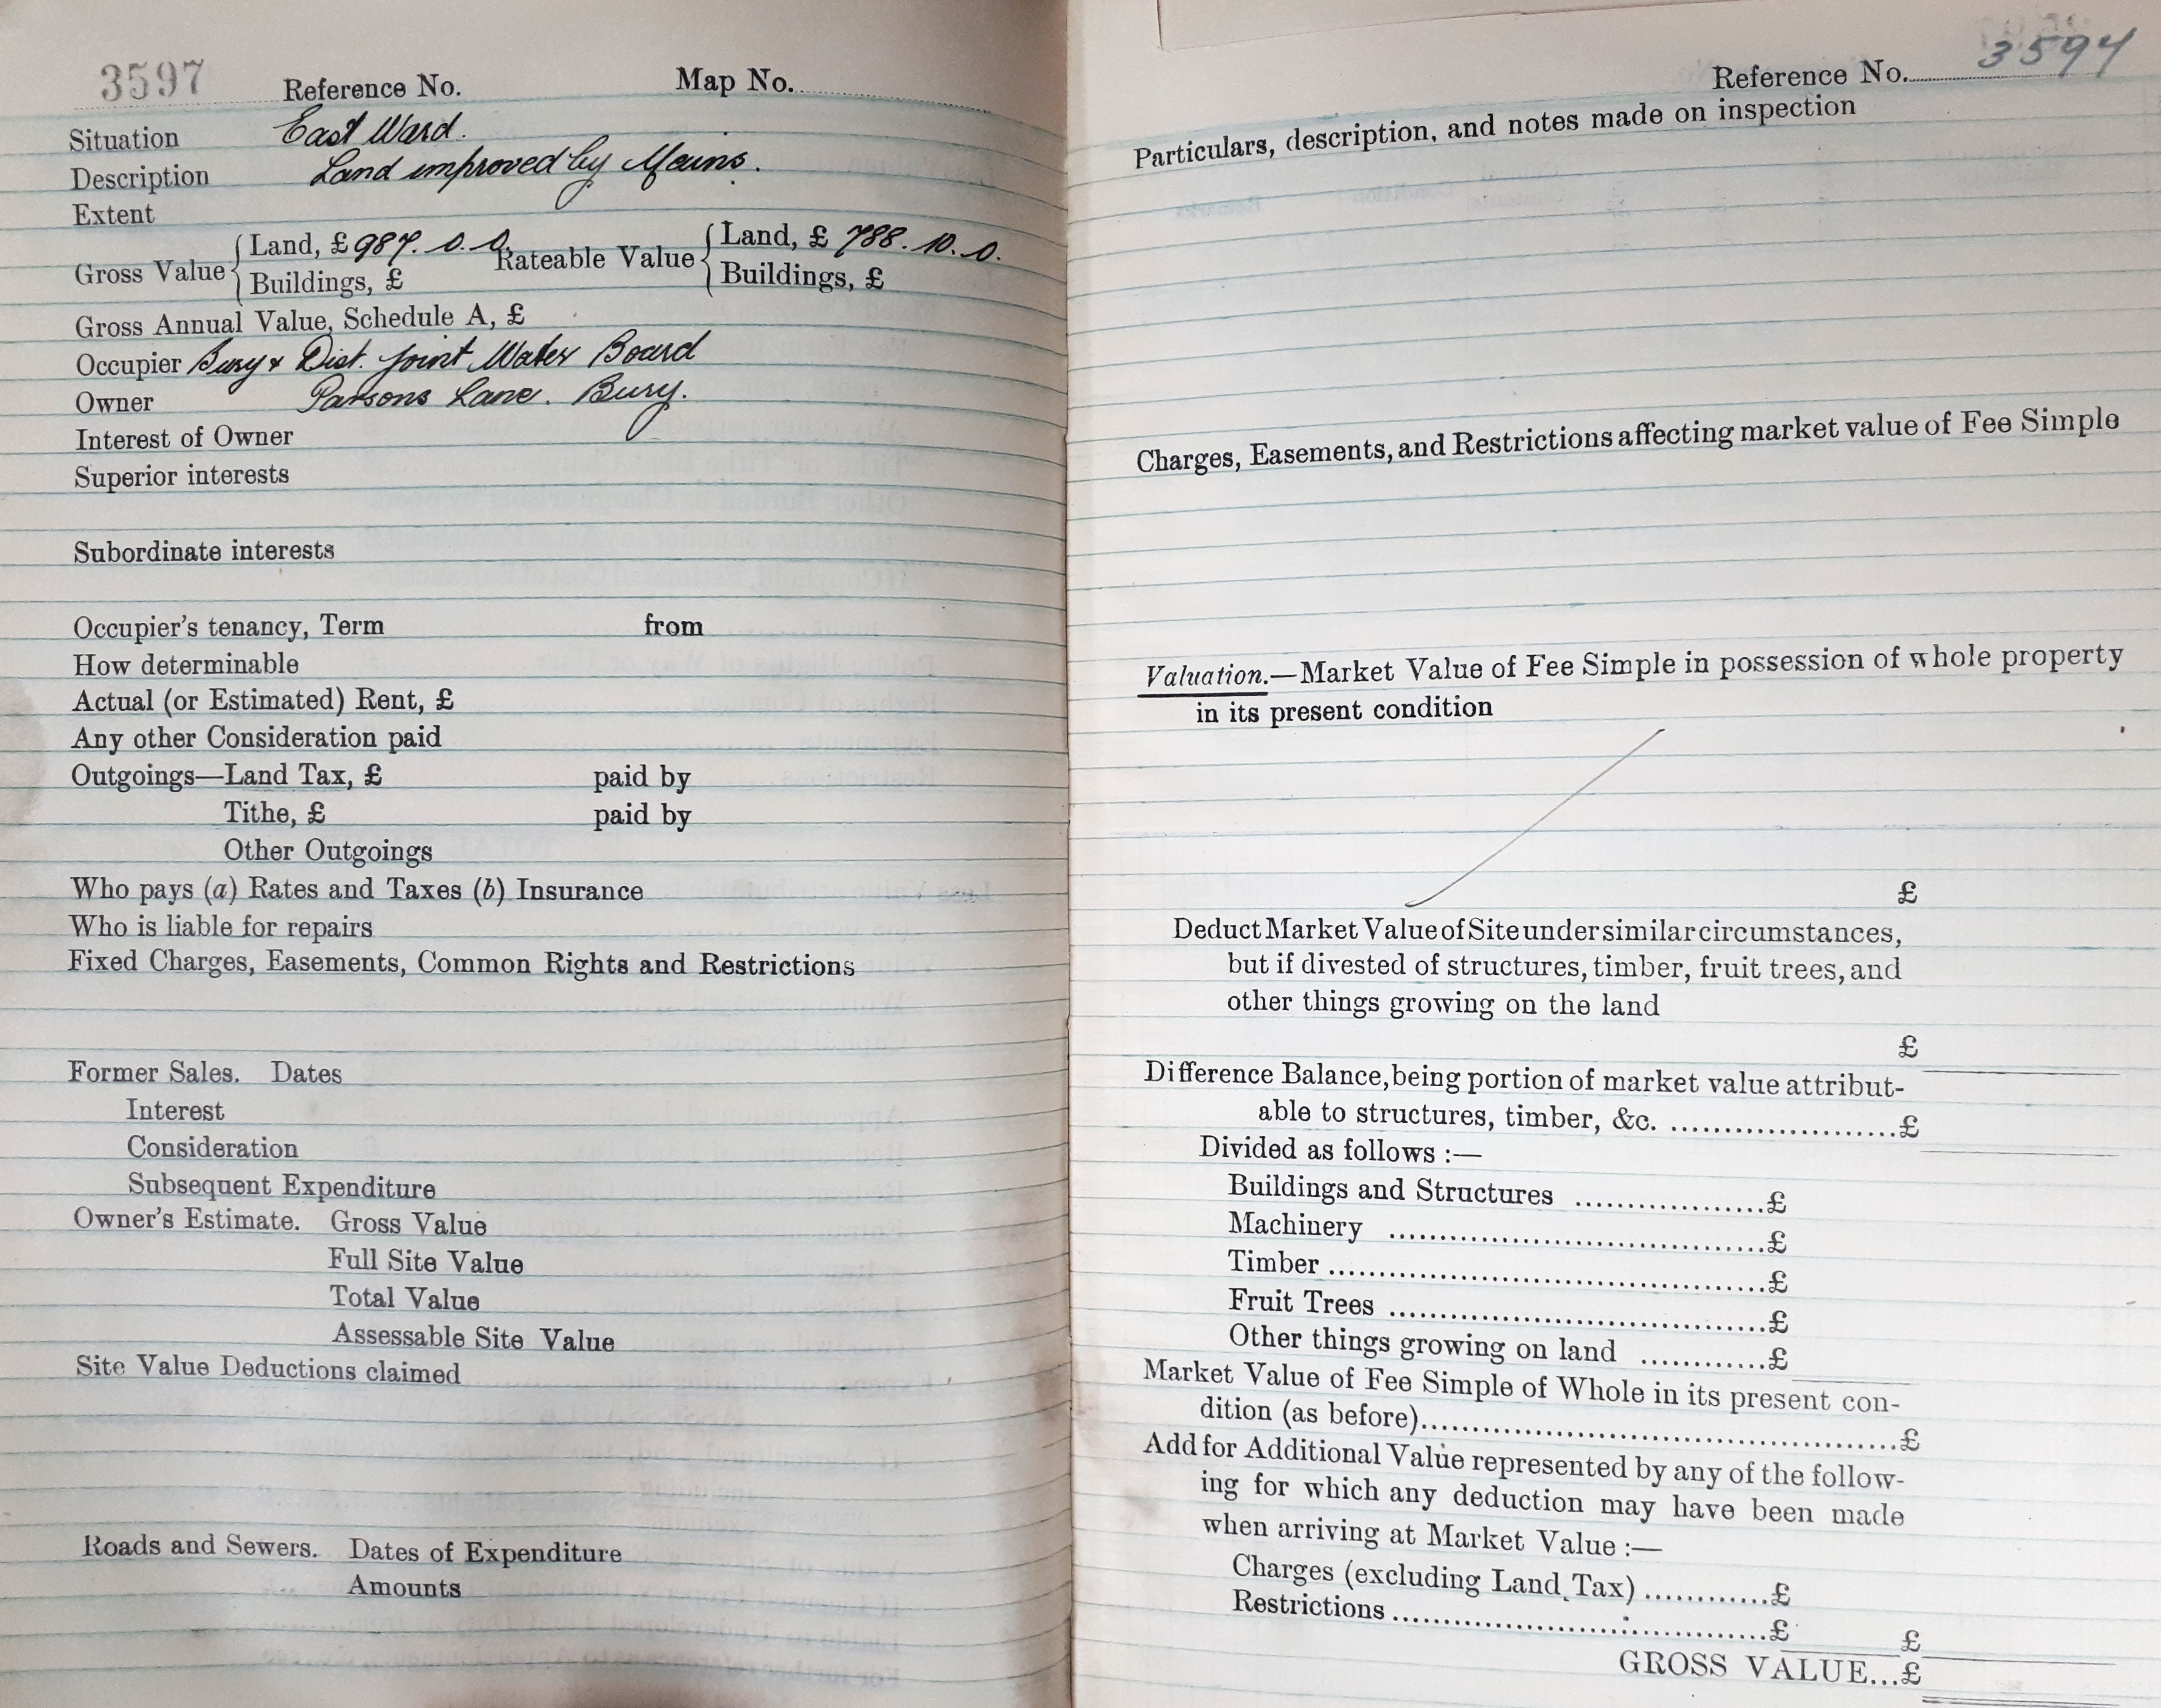 3597 Reference No. Map No.
Situation East Ward.
Description Land improved by Mains.
Extent
Gross Value { Land, £ 987. 0. 0. Rateable Value { Land, £ 788. 10. 0.
Buildings, £ Buildings, £
Gross Annual Value, Schedule A, £
Occupier Bury & Dist. Joint Water Board
Owner Parsons Lane. Bury.
Interest of Owner
Superior interests
Subordinate interests
Occupier's tenancy, Term from
How determinable
Actual (or Estimated) Rent, £
Any other Consideration paid
Outgoings—Land Tax, £ paid by
Tithe, £ paid by
Other Outgoings
Who pays (a) Rates and Taxes (b) Insurance
Who is liable for repairs
Fixed Charges, Easements, Common Rights and Restrictions
Former Sales. Dates
Interest
Consideration
Subsequent Expenditure
Owner's Estimate. Gross Value
Full Site Value
Total Value
Assessable Site Value
Site Value Deductions claimed
Roads and Sewers. Dates of Expenditure
Amounts
Reference No. 3594
Particulars, description, and notes made on inspection
Charges, Easements, and Restrictions affecting market value of Fee Simple
Valuation.—Market Value of Fee Simple in possession of whole property
in its present condition
£
Deduct Market Value of Site under similar circumstances,
but if divested of structures, timber, fruit trees, and
other things growing on the land
£
Difference Balance, being portion of market value attribut-
able to structures, timber, &c. ......................£
Divided as follows :—
Buildings and Structures ..................£
Machinery ....................................£
Timber ..........................................£
Fruit Trees ....................................£
Other things growing on land ............£
Market Value of Fee Simple of Whole in its present con-
dition (as before)..............................................£
Add for Additional Value represented by any of the follow-
ing for which any deduction may have been made
when arriving at Market Value :—
Charges (excluding Land Tax) ............£
Restrictions ....................................£ £
GROSS VALUE...£